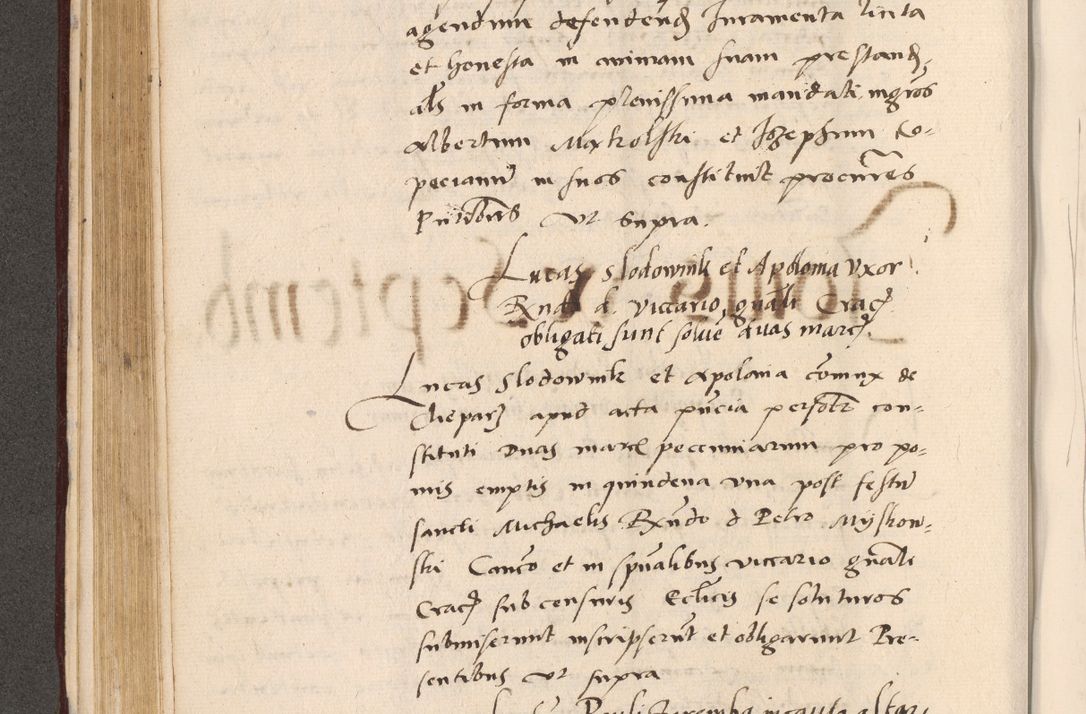 agendum defendend Juramenta licita
et honesta in animam suam prestand,
als in forma plenissima mandati, mgros
Albertum et Jozephum Co-
pecianu in suos constituit procures
Pntibus ut supra.
Lucas Slodownik et Apolonia Vxor
Rndo d. viccario gnali Crac
obligati sunt solue duas marc.
Lucas Slodownik et Apolonia coniux de
Cleparz apud acta pncia personr con-
stituti Duas marc pecuniarum pro po-
mis emptis in quindena vna post festu
sancti Michaelis Rxndo d Petro Myskow-
ski Canco et in spualibus viccario gnali
Crac sub censuris Ecclicis se soluturos
submiserunt inscripserut et obligarunt Pre-
sentibus ut supra